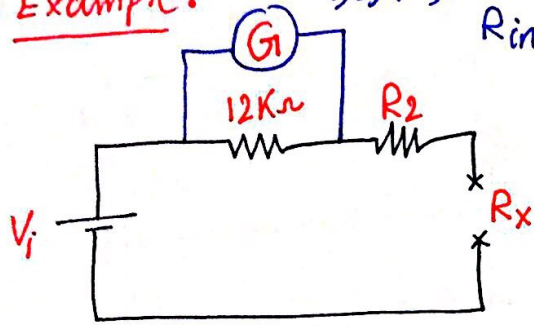 Example:
Rin
G
12KΩ
R2
Vi
Rx